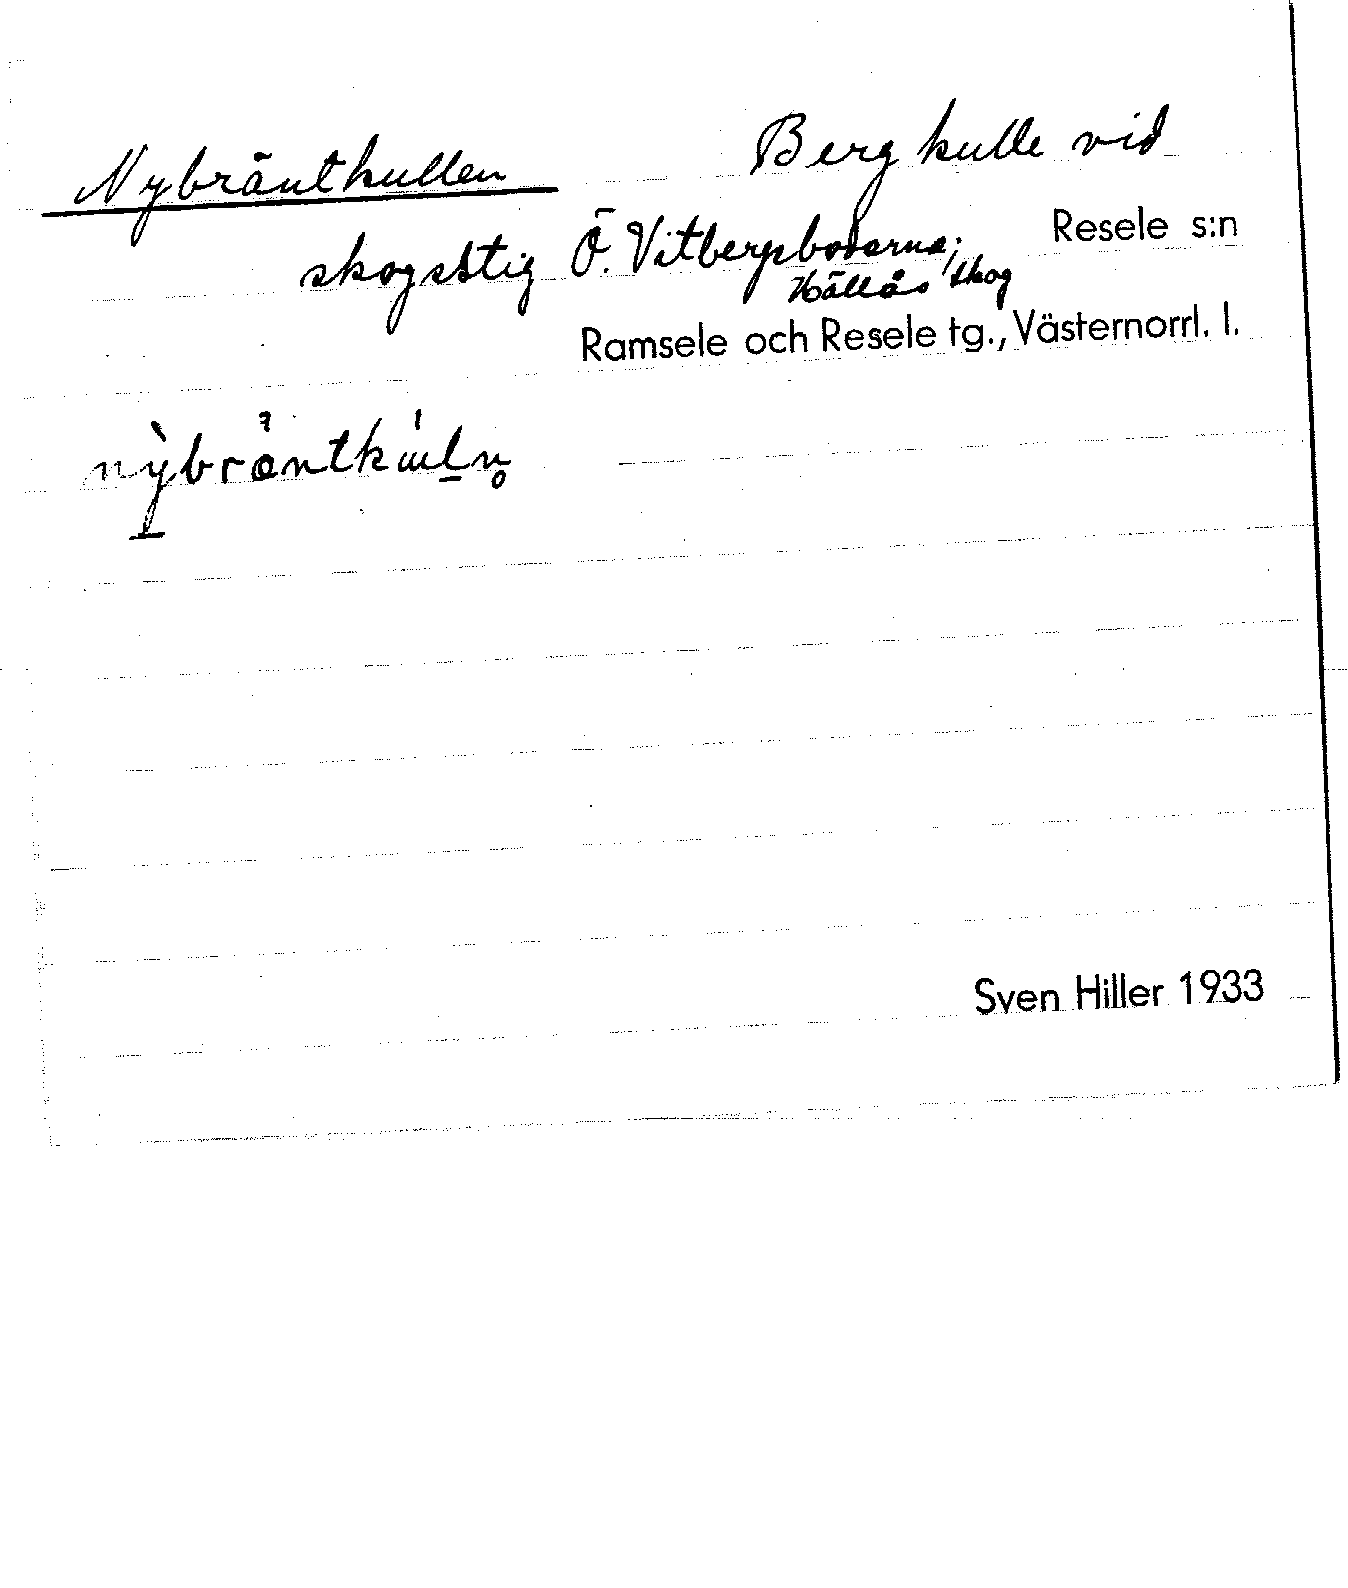 Nybräntkullen Bergkulle vid
skogsstig Ö. Vitbergsbodarna; Resele s:n
Hällås skog
Ramsele och Resele tg., Västernorrl. l.
Sven Hiller 1933